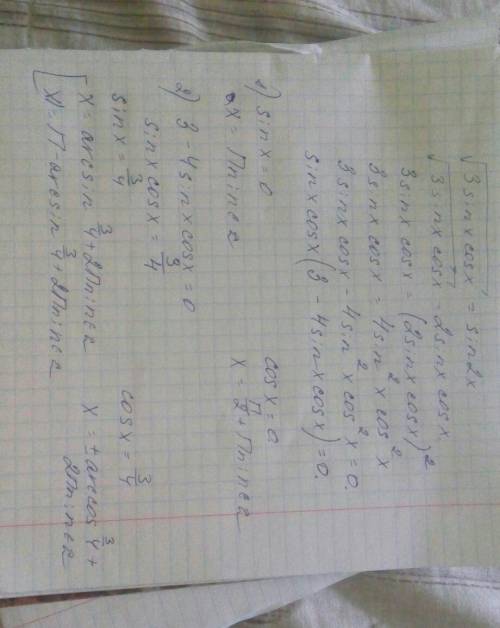 √3sinxcosx = sin2x
√3sinxcosx = 2sinxcosx
3sinxcosx = (2sinxcosx)²
3sinxcosx = 4sin²xcos²x
3sinxcosx - 4sin²xcos²x = 0.
sinxcosx(3 - 4sinxcosx) = 0.
1) sinx = 0 cosx = 0
x = Пn; n∈z x = П/2 + Пn; n∈z
2) 3 - 4sinxcosx = 0
sinxcosx = 3/4
sinx = 3/4 cosx = 3/4
[x = arcsin 3/4 + 2Пn; n∈z x = ±arccos 3/4 +
x = П - arcsin 3/4 + 2Пn; n∈z 2Пn; n∈z